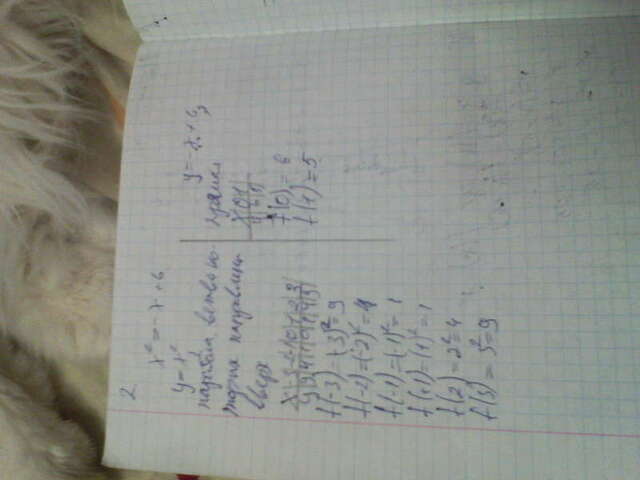 2
x² = -x + 6
y = x²
парабола ветви ко-
торой направлены
вверх
x|-3|-2|-1|0|1|2|3|
y|9|4|1|0|1|4|9|
f(-3) = (-3)² = 9
f(-2) = (-2)² = 4
f(-1) = (-1)² = 1
f(+1) = (1)² = 1
f(2) = 2² = 4
f(3) = 3² = 9
y = -x + 6,
прямая
x|0|1|
y|6|5|
f(0) = 6
f(1) = 5